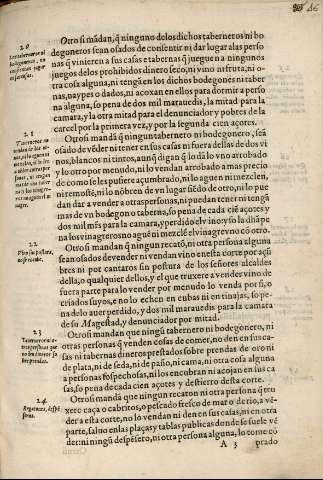 Otrosi mādan, q̄ ninguno delos dichos taberneros ni bo
degoneros sean osados de consentir ni dar lugar alas perso
nas q̄ vinieren a sus casas e tabernas q̄ juegue n a ningunos
juegos delos prohibidos dinero seco, ni vino ni fruta, ni o-
tra cosa alguna, ni tengā en los dichos bodegones ni taber
nas, naypes o dados, ni acoxan en ellos para dormir a perso
na alguna, so pena de dos mil marauedis, la mitad para la
camara, y la otra mitad para el denunciador y pobres de la
carcel por la primera vez, y por la segunda cien açotes.
Otrosi mandā q̄ ningun tabernero ni bodegonero, seā
osado de vēder ni tener en sus casas ni fuera dellas de dos vi
nos, blancos ni tintos, aunq̄ digan q̄ lo dā lo vno arrobado
y lo otro por menudo, ni lo vendan arrobado a mas precio
de como se les pusiere açumbreado, ni lo aguen ni mezclen,
ni remoste, ni lo nōbren de vn lugar siēdo de otro, ni lo pue
dan dar a vender a otras personas, ni puedan tener ni tengā
mas de vn bodegon o taberna, so pena de cada ciē açotes y
dos mil mrs para la camara, y perdido el vino y so la dicha pe
na los vinagreros no aguē ni mezclē el vinagre vno cō otro.
Otrosi mandan q̄ ningun recatō, ni otra persona alguna
sean osados de vender ni vendan vino en esta corte por açū
bres ni por cantaros sin postura de los señores alcaldes
della, o qualquier dellos, y el que truxere a vender vino de
fuera parte para lo vender por menudo lo venda por si, o
criados suyos, e no lo echen en cubas ni en tinajas, so pe-
na de lo auer perdido, y dos mil marauedis para la camara
de su Magestad, y denunciador por mitad.
Otrosi mandan que ningū tabernero ni bodegonero, ni
otras personas q̄ venden cosas de comer, no den en sus ca-
sas ni tabernas dineros prestados sobre prendas de oro ni
de plata, ni de seda, ni de paño, ni cama, ni otra cosa alguna
a personas sospechosas, ni los encobran ni acojan en sus ca
sas, so pena de cada cien açotes y destierro desta corte.
Otrosi mandā que ningun recaton ni otra persona q̄ tru
xere caça o cabritos, o pescado fresco de mar o de rio, a vē-
der a esta corte, no lo vendan ni den en sus casas, ni en otra
parte, saluo en las plaças y tablas publicas donde se suele vē
der: ni ningū despēsero, ni otra persona alguna, lo tome cō
A 3 prado
2 0
2 1
2 2
Vino sin postura,
no se venda.
2 3
2 4